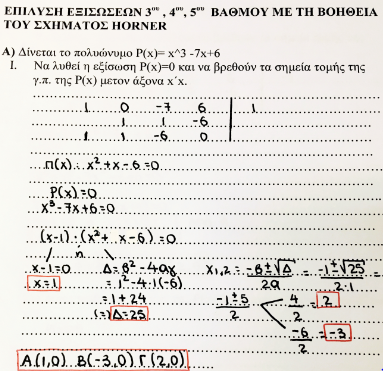 ΕΠΙΛΥΣΗ ΕΞΙΣΩΣΕΩΝ 3ου , 4ου, 5ου ΒΑΘΜΟΥ ΜΕ ΤΗ ΒΟΗΘΕΙΑ
ΤΟΥ ΣΧΗΜΑΤΟΣ HORNER
Α) Δίνεται το πολυώνυμο P(x)= x^3 -7x+6
I. Να λυθεί η εξίσωση P(x)=0 και να βρεθούν τα σημεία τομής της
γ.π. της P(x) μετον άξονα x΄x.
1 0 -7 6 | 1
1 1 -6
1 1 -6 0
Π(x): x²+x-6=0
P(x)=0
x³-7x+6=0
(x-1)·(x²+x-6)=0
ή
x-1=0 Δ=β²-4αγ x1,2 = (-β±√Δ)/2α = (-1±√25)/2·1 =
x=1 =1²-4·1(-6)
=1+24 (-1±5)/2 4/2=2
(=) Δ=25 -6/2=-3
A(1,0) B(-3,0) Γ(2,0)